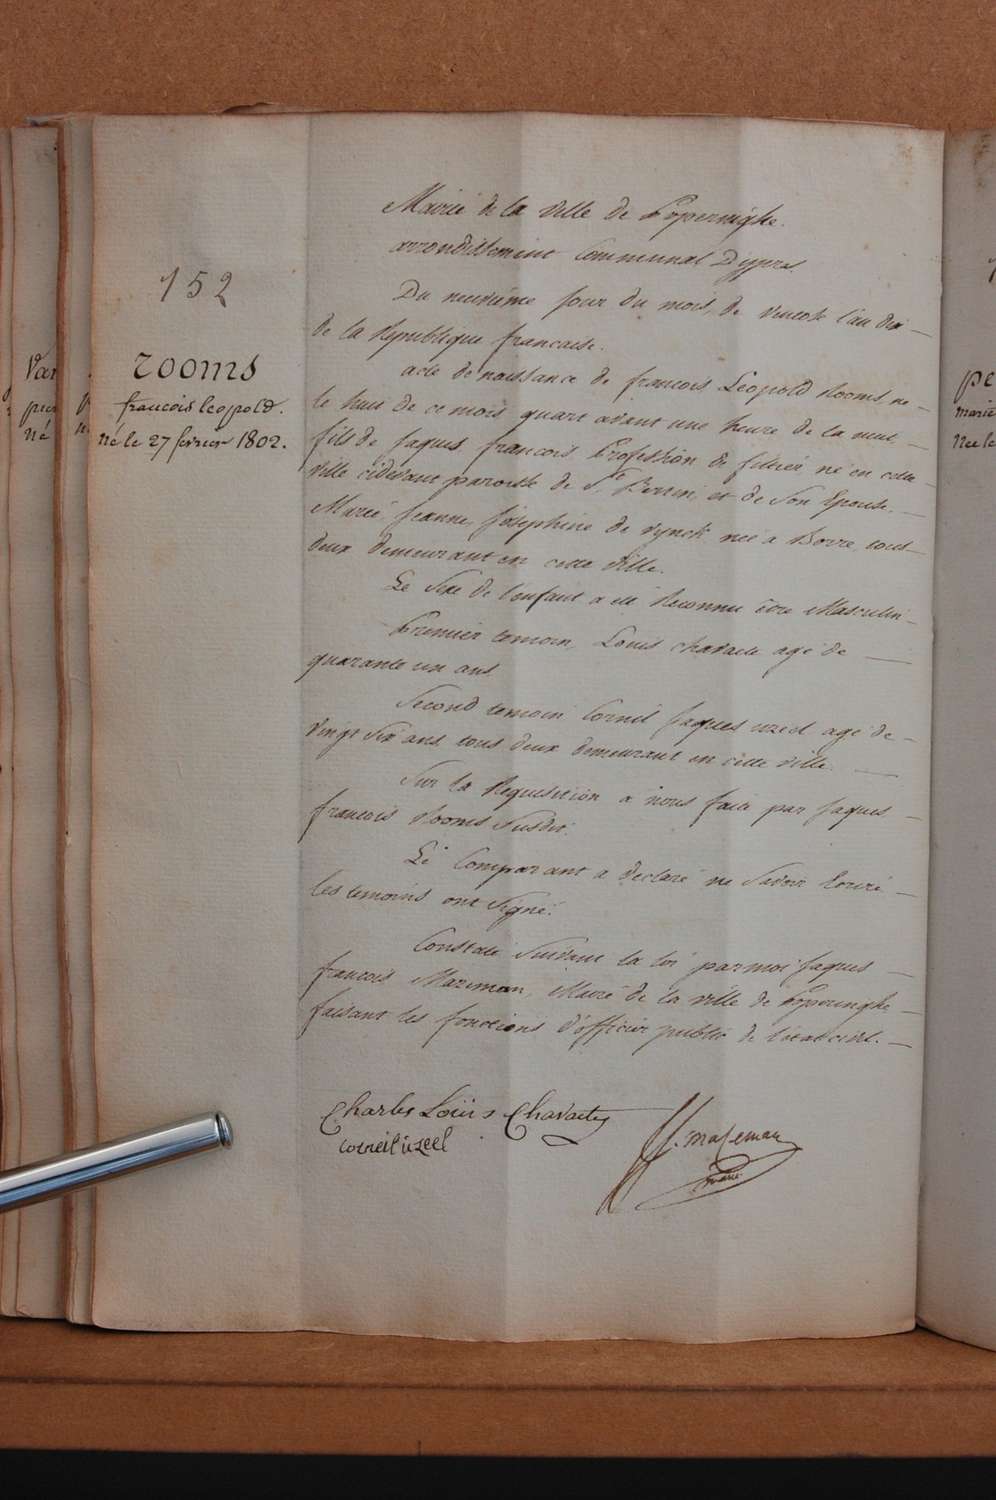 152
rooms
francois leopold.
né le 27 fevrier 1802.
Mairie de la ville de Poperinghe.
arrondissement Communal Dypres.
Du neuvième jour du mois, de ventose l'an dix —
de la Republique francaise.
acte de naissance de francois Léopold Rooms né —
le huit de ce mois quart avant une heure de la nuit —
fils de Jaques francois Profession de né en cette —
ville cidevant paroisse de St. Bertin, et de Son Epouse. —
Marie Jeanne, Josephine de Vynck née a Borre, tous —
deux demeurant en cette Ville.
Le Sexe de l'enfant a été Reconnu être Masculin —
Premier temoin, Louis Chavaete agé de —
quarante un ans
Second temoin Cornil Jaques uzeel agé de —
Vingt Six ans tous deux demeurant en cette ville. —
Sur la Requisition a nous faite par Jaques —
francois Rooms Susdit.
Le Comparant a declaré ne Savoir Ecrire —
les temoins ont Signé.
Constaté Suivant la loi par moi Jaques —
francois Mazeman, Maire de la ville de Poperinghe —
faisant les fonctions d'officier public de l'état civil. —
Charles Loüis Chavaete
corneil üzeel
JF. mazeman
maire
Van
né
pe
marie
née le